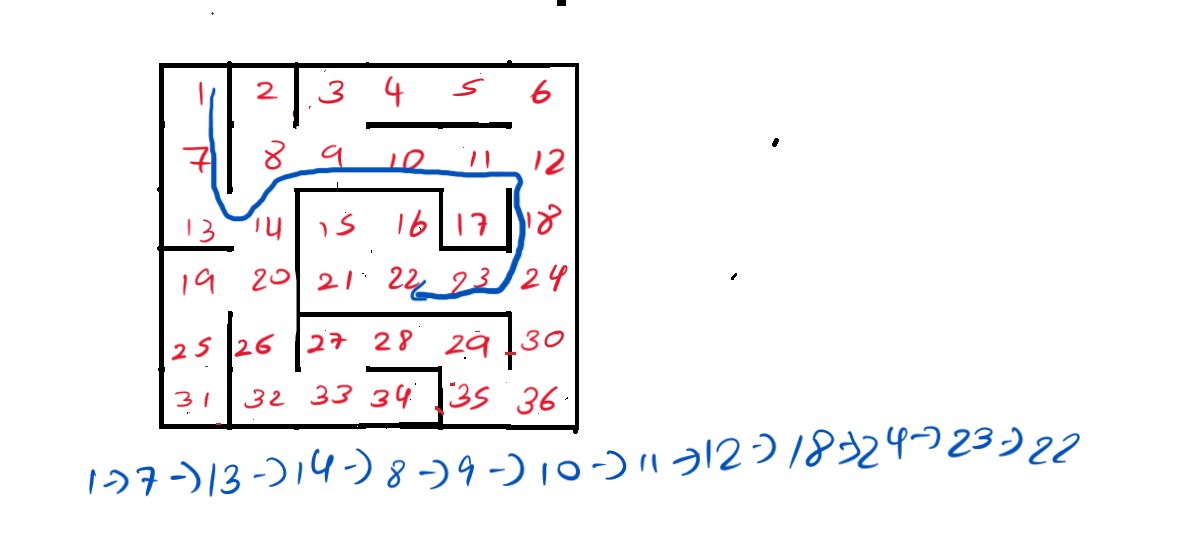 1 2 3 4 5 6
7 8 9 10 11 12
13 14 15 16 17 18
19 20 21 22 23 24
25 26 27 28 29 30
31 32 33 34 35 36
1->7->13->14->8->9->10->11->12->18->24->23->22